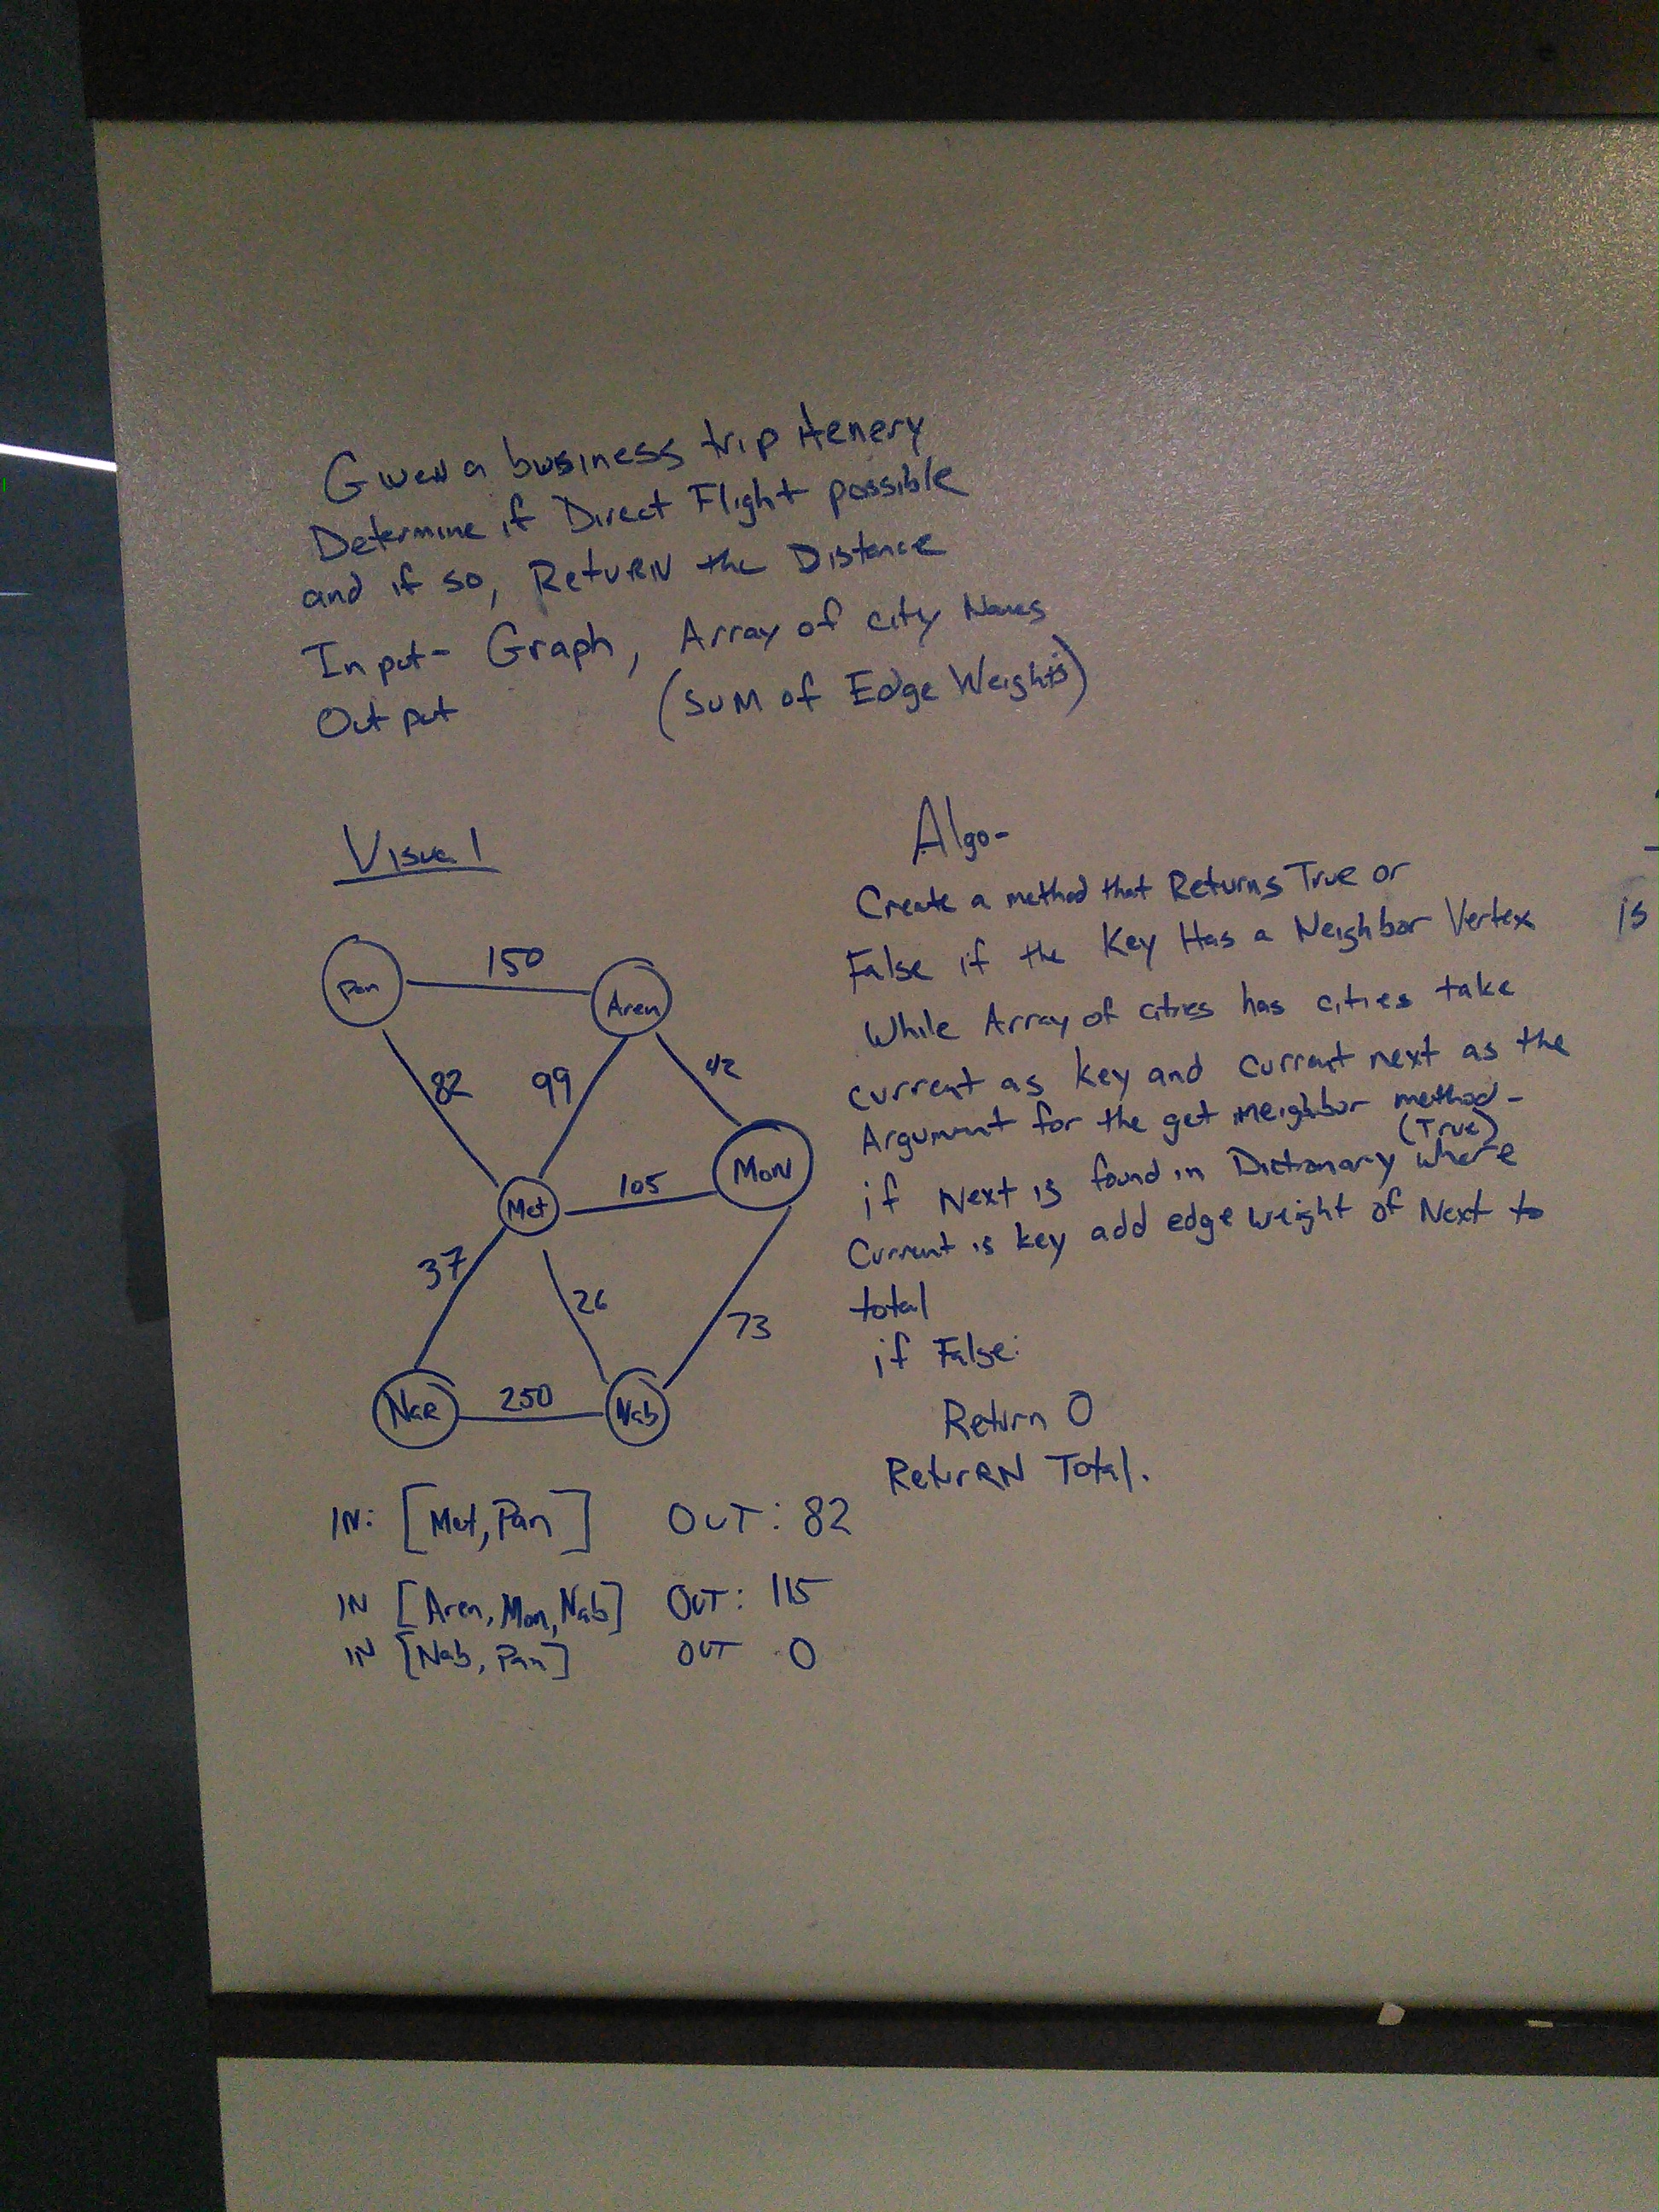 Given a business trip itenery
Determine if Direct Flight possible
and if so, Return the Distance
Input- Graph, Array of city Names
Output (SUM of Edge Weights)
Visual
Pan
150
Aren
82
99
42
Met
105
MON
37
26
73
Nar
250
Nab
IN: [Met, Pan] OUT: 82
IN [Aren, Mon, Nab] OUT: 115
IN [Nab, Pan] OUT 0
Algo-
Create a method that Returns True or
False if the Key Has a Neighbor Vertex
While Array of cities has cities take
current as key and current next as the
Argument for the get neighbor method-
(True)
if Next is found in Dictionary where
Current is key add edge weight of Next to
total
if False:
Return 0
Return Total.
is